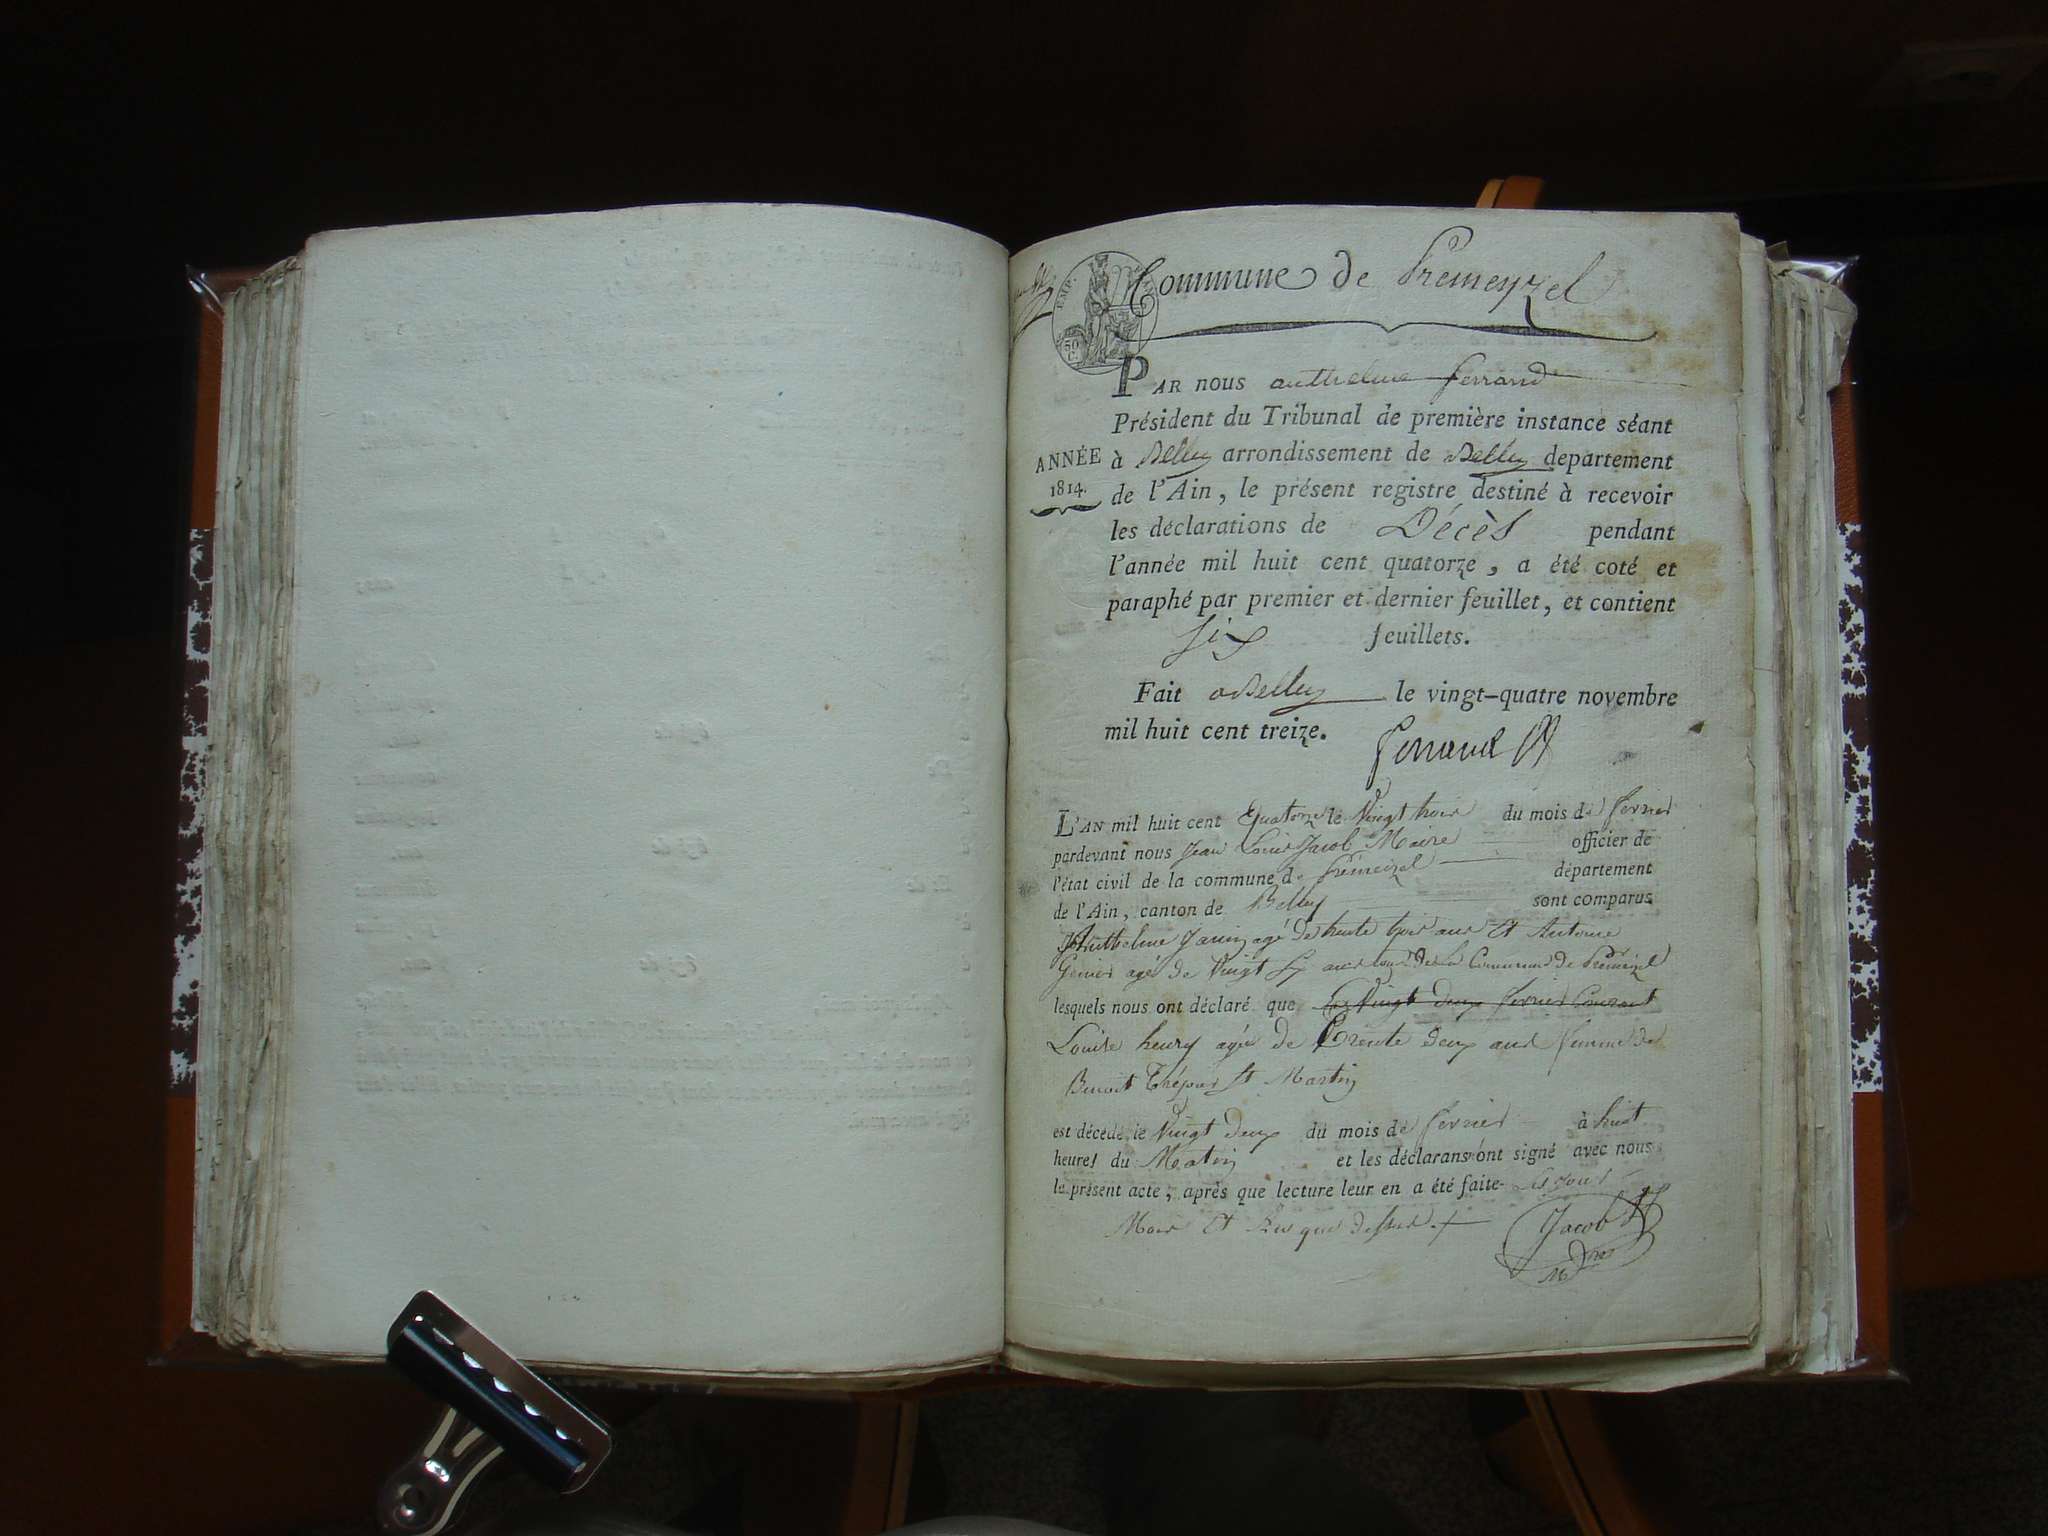 Commune de Premeyzel
EMP.
50
C.
PAR nous anthelme ferrand
Président du Tribunal de première instance séant
ANNÉE
1814.
à Belley arrondissement de Belley departement
de l'Ain, le présent registre destiné à recevoir
les déclarations de Décès pendant
l'année mil huit cent quatorze, a été coté et
paraphé par premier et dernier feuillet, et contient
Six feuillets.
Fait a Belley le vingt-quatre novembre
mil huit cent treize.
ferrand
L'AN mil huit cent Quatorze le Vingt trois du mois de fevrier
pardevant nous Jean Louis Jacob Maire officier de
l'état civil de la commune de Prémeizel département
de l'Ain, canton de Belley sont comparus
Anthelme Janin agé de trente trois ans Et Antoine
agé de Vingt Six ans de la Commune de Prémeizel
lesquels nous ont déclaré que Le Vingt deux fevrier Courant
Louise henry agée de Trente deux ans femme de
Benoit St Martin
est décédé le Vingt deux du mois de fevrier à huit
heures du Matin et les déclarans ont signé avec nous
le présent acte, après que lecture leur en a été faite Les jour
Mois Et an que dessus
Jacob